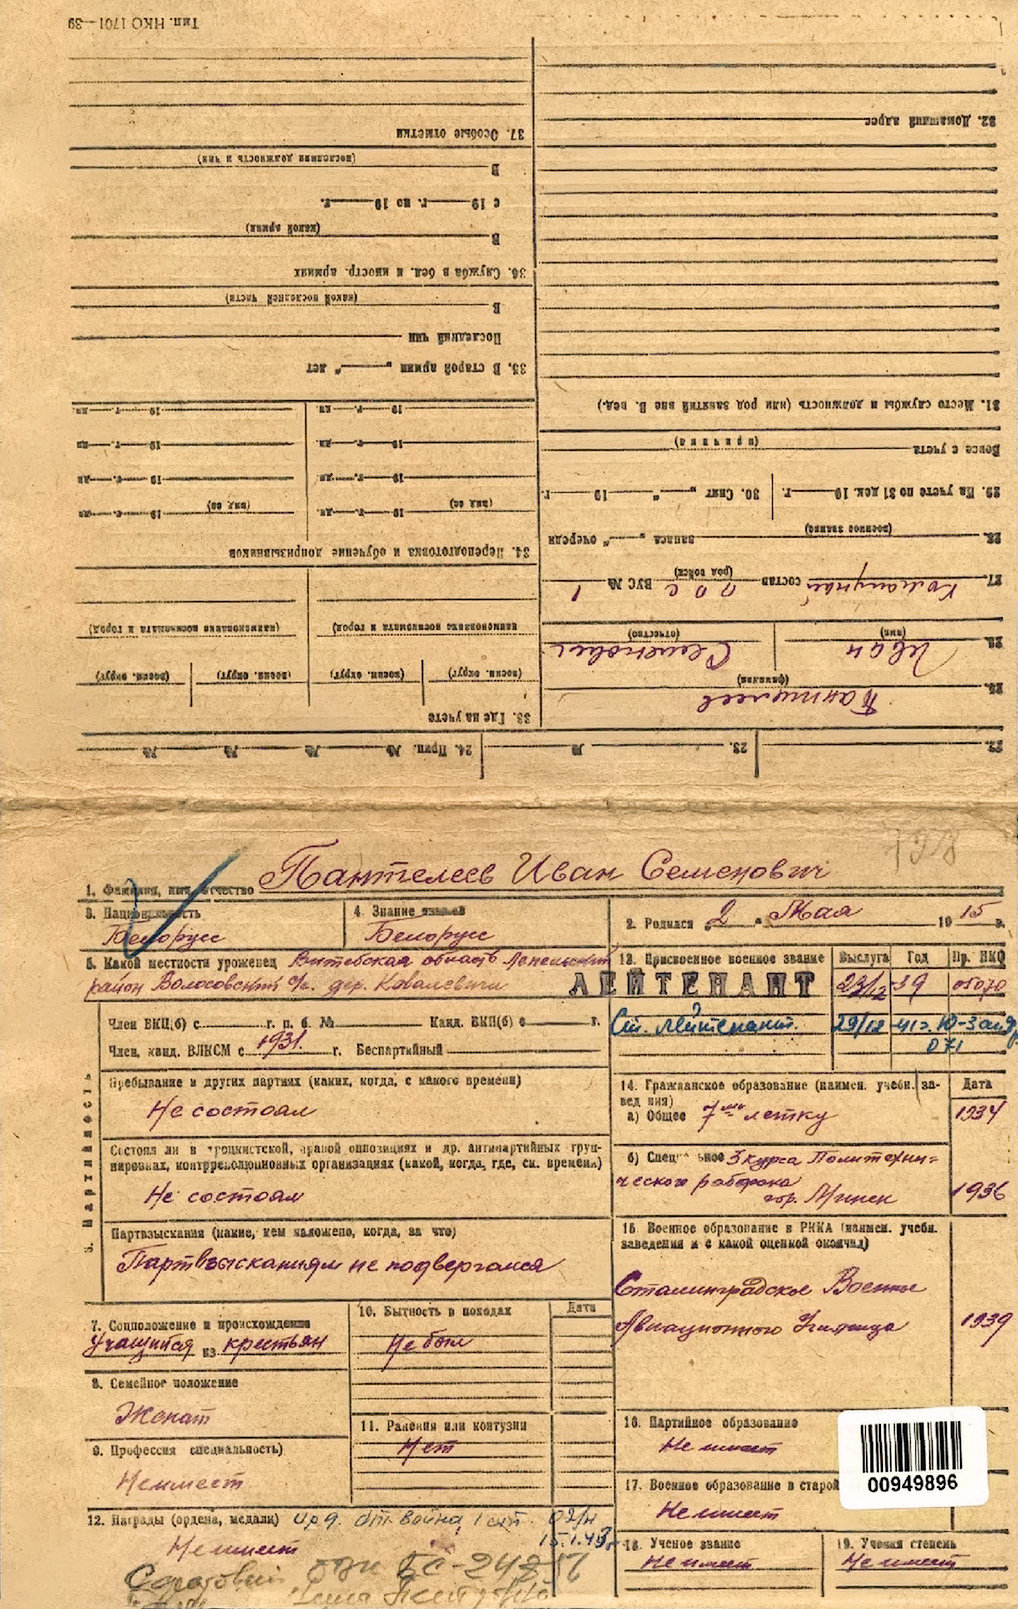 Тип. НКО 1701—39
32. Домашний адрес
31. Место службы и должность (или род занятий вне В. вед.)
Вовсе с учета
(причина)
29. На учете по 31 дек. 19 г. 30. Снят „ “ 19 г.
28. запаса „ “ очереди
(военное звание)
27. Командный состав ВВС ВУС № 1
(род войск)
26. Иван Семенович
(имя) (отчество)
25. Пантелеев
(фамилия)
22. 23. № 24. Прип. № № № №
37. Особые отметки
(последняя должность и чин)
В
с 19 г. по 19 г.
(какой армии)
В
36. Служба в бел. и иностр. армиях
(какой последней части)
В
Последний чин
35. В старой армии „ “ лет
19 г. дн. 19 г. дн.
19 г. дн. 19 г. дн.
19 г. дн. 19 г. дн.
(вид св) 19 г. дн. (вид св) 19 г. дн.
34. Переподготовка и обучение допризывников
(наименование военкомата и город) (наименование военкомата и город)
(воен. округ) (воен. округ) (воен. округ) (воен. округ)
33. Где на учете
728
1. Фамилия, имя, отчество Пантелеев Иван Семенович
3. Национальность
Белорусс
4. Знание языков
Белорусс
2. Родился „2“ Мая 1915 г.
5. Какой местности уроженец Витебская область Лепельский
район Волосовский с/с. дер. Ковалевичи
13. Присвоенное военное звание Выслуга Год Пр. НКО
ЛЕЙТЕНАНТ 23/12 39 05070
Ст. лейтенант. 29/12 41г. Ю-З
071
6. Партийность
Член ВКП(б) с г. п. б. № Канд. ВКП(б) с г.
Член, канд. ВЛКСМ с 1931 г. Беспартийный
Пребывание в других партиях (каких, когда, с какого времени)
Не состоял
Состоял ли в троцкистской, правой оппозициях и др. антипартийных груп-
пировках, контрреволюционных организациях (какой, когда, где, ск. времени)
Не состоял
Партвзыскания (какие, кем наложено, когда, за что)
Партвзысканиям не подвергался
14. Гражданское образование (наимен. учебн. за-
ведения) Дата
а) Общее 7ми летку 1934
б) Специальное 3 курса Политехни-
ческого рабфака
гор. Минск 1936
15. Военное образование в РККА (наимен. учебн.
заведения и с какой оценкой окончил)
Сталинградское Военно
Авиационного Училища 1939
7. Соцположение и происхождение
Учащийся из крестьян
8. Семейное положение
Женат
9. Профессия (специальность)
Не имеет
10. Бытность в походах Дата
Не был
11. Ранения или контузии
Нет
12. Награды (ордена, медали) Орд. От. война 1 ст. 02/н
15.1.43г.
Не имеет
16. Партийное образование
Не имеет
00949896
17. Военное образование в старой
Не имеет
18. Ученое звание
Не имеет
19. Ученая степень
Не имеет